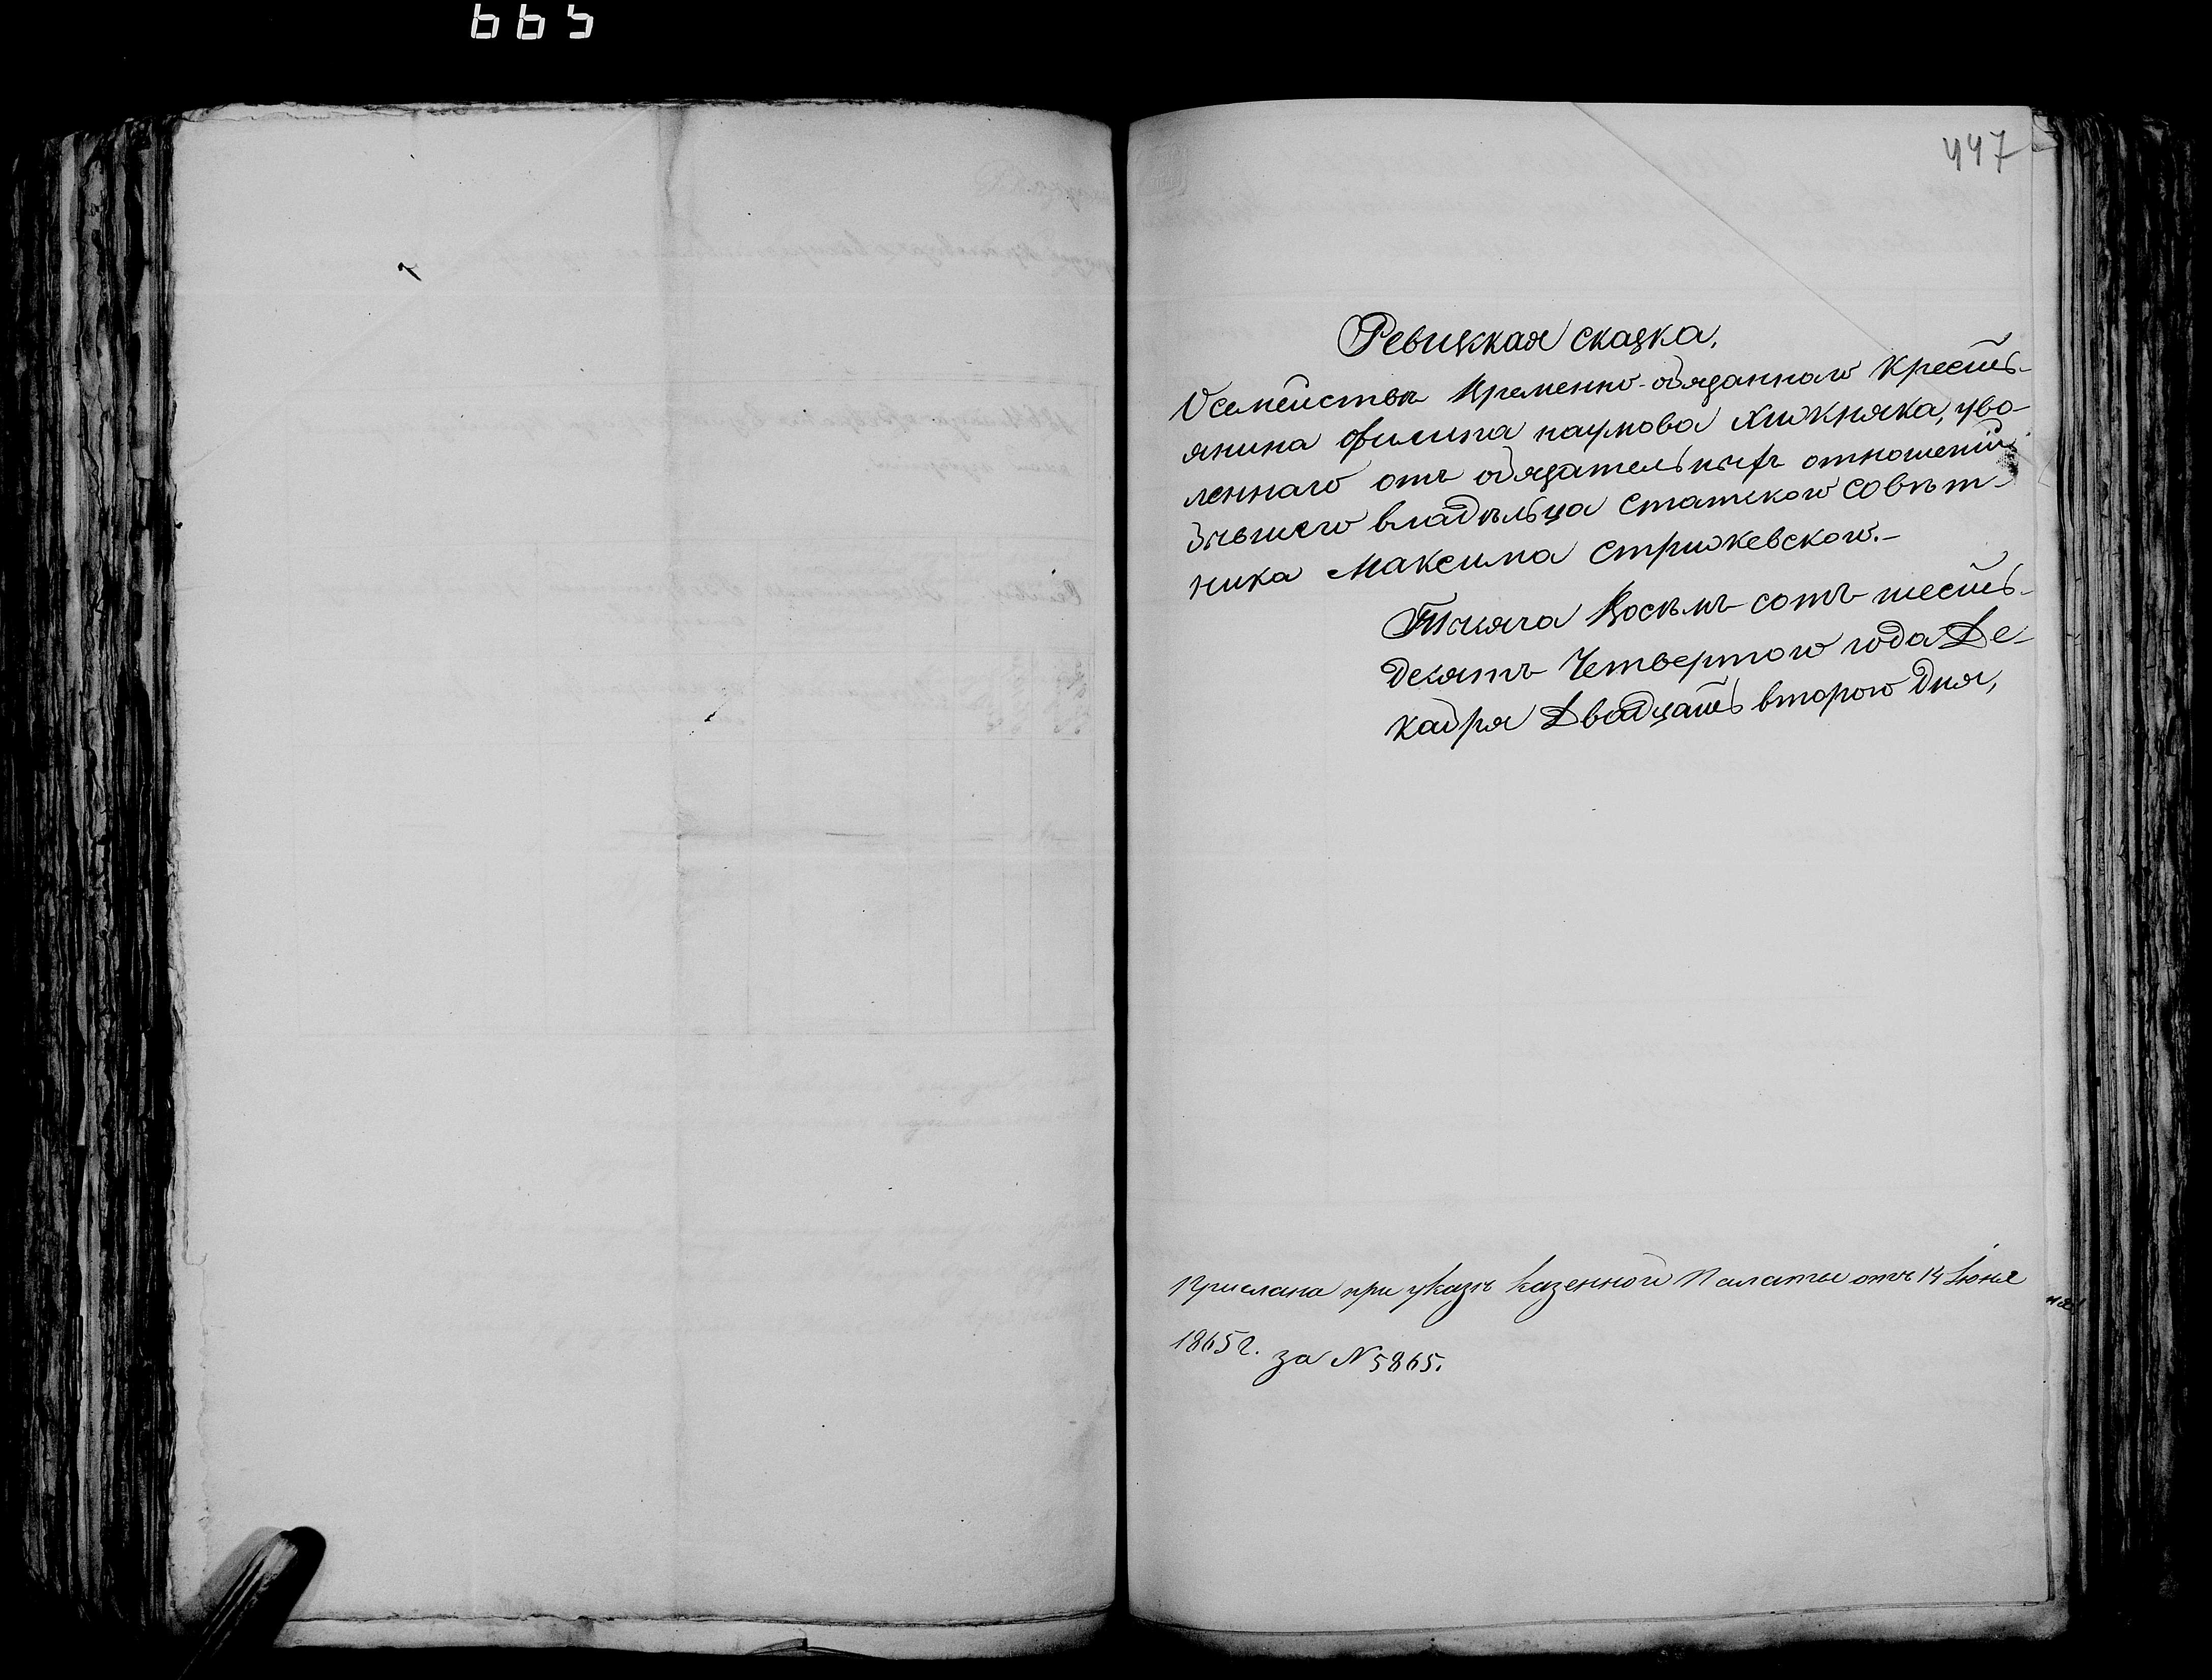 665
447
Ревизкая сказка.
О семействе Временно-обязаннаго Кресть-
янина филипа наумова Хижняка, уво-
леннаго отъ обязательныхъ отношеній
бывшего владѣльца Статского Совѣт-
ника Максима Стрижевского.-
Тысяча Восѣмъ сотъ шесть-
десятъ Четвертого года Де-
кабря Двадцать второго Дня,
Прислана при указѣ Казенной Палаты отъ 14 Іюня
1865 г. за N 5865.